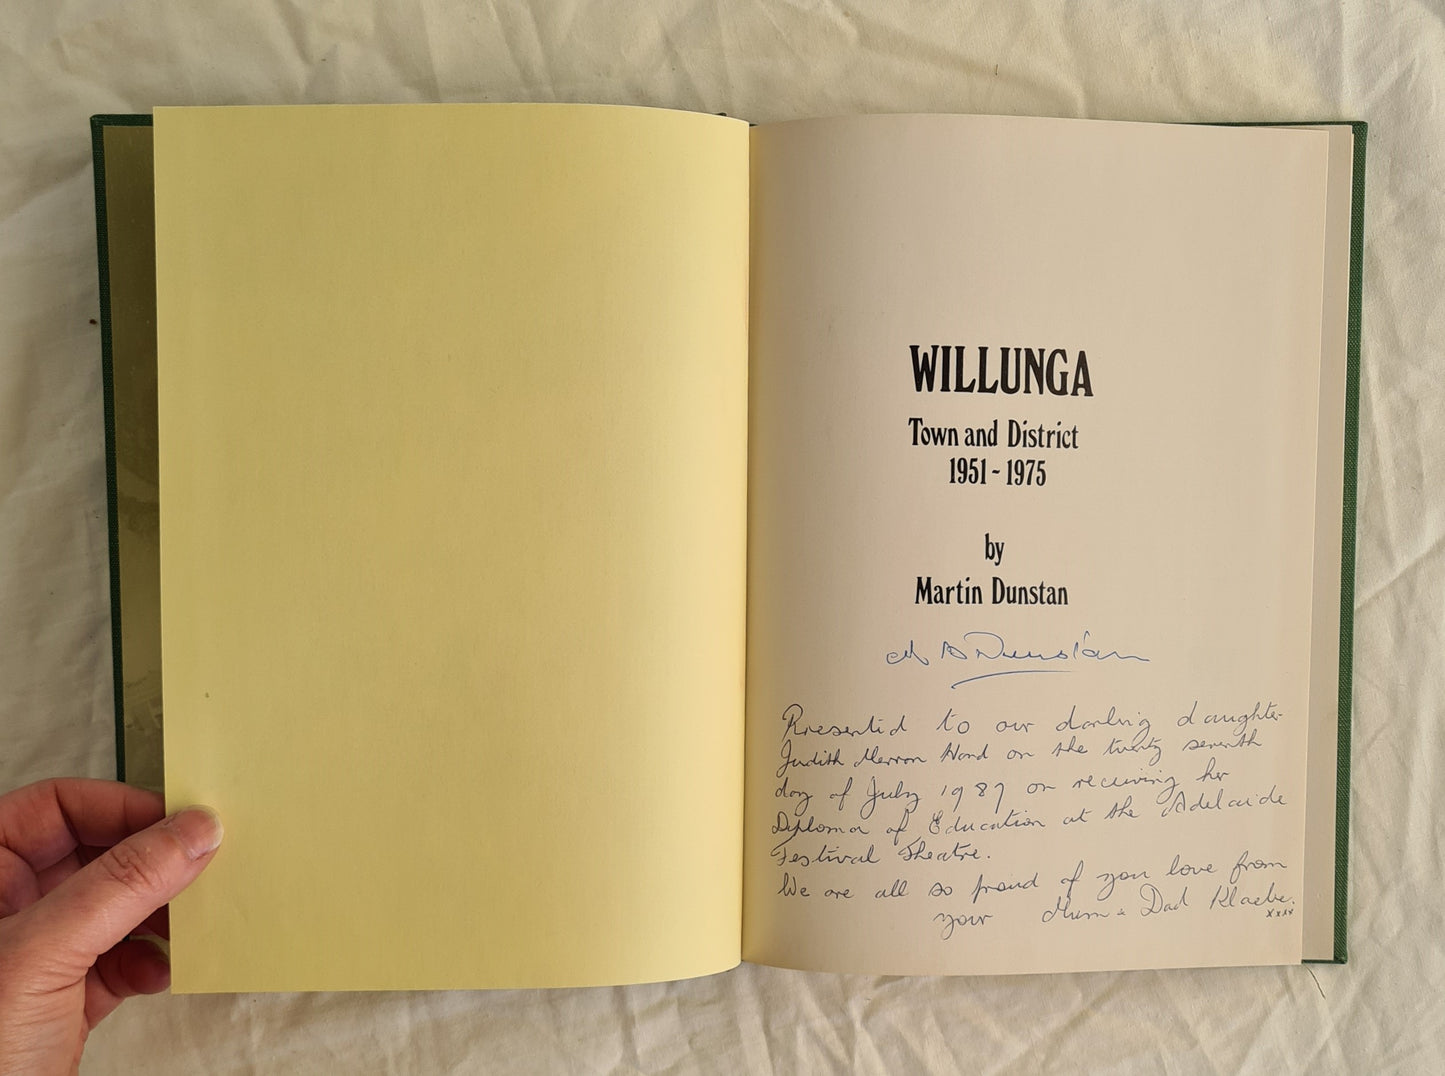 WILLUNGA
Town and District
1951 - 1975
by
Martin Dunstan
M D Dunstan
Presented to our darling daughter
Judith Merron Hand on the twenty seventh
day of July 1987 on receiving her
Diploma of Education at the Adelaide
Festival Theatre.
We are all so proud of you love from
your Mum & Dad Klaebe.
xxxx